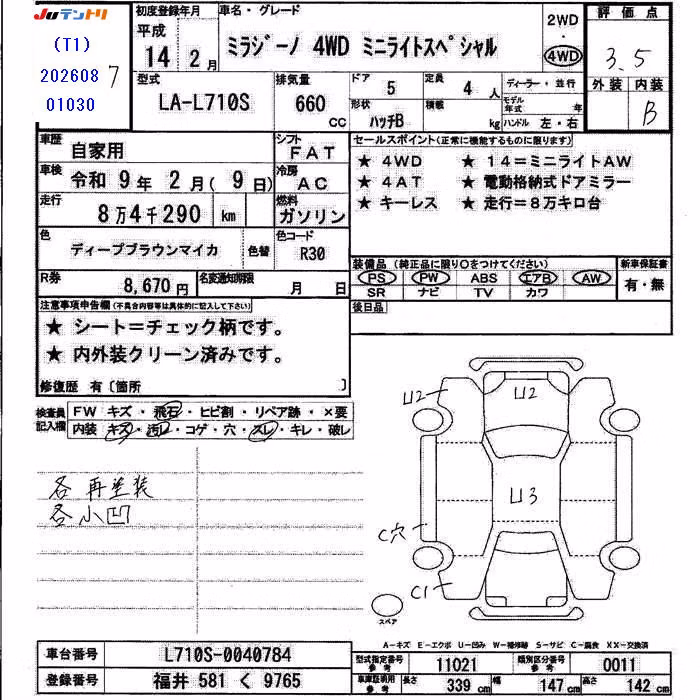 Juテントリ
(T1)
202608 7
01030
初度登録年月
平成
14 2月
車名・グレード
ミラジーノ 4WD ミニライトスペシャル
2WD
・
4WD
評価点
3.5
外装 内装
B
型式
LA-L710S
排気量
660
CC
ドア 5
定員 4人
形状 ハッチB
積載 kg
ディーラー・並行
モデル年式 年
ハンドル 左・右
車歴
自家用
シフト
FAT
車検
令和 9年 2月(9日)
冷房
AC
走行
8万4千290 km
燃料
ガソリン
色
ディープブラウンマイカ
色替
色コード
R30
R券
8,670円
名変通知期限
月 日
セールスポイント(正常に機能するものに限ります)
★ 4WD ★ 14=ミニライトAW
★ 4AT ★ 電動格納式ドアミラー
★ キーレス ★ 走行=8万キロ台
装備品(純正品に限り○をつけてください)
PS PW ABS エアB AW
SR ナビ TV カワ
新車保証書
有・無
後日品
注意事項申告欄(不具合内容等は具体的に記入して下さい)
★ シート=チェック柄です。
★ 内外装クリーン済みです。
修復歴 有〔箇所 〕
検査員記入欄
FW キズ・飛石・ヒビ割・リペア跡・×要
内装 キズ・汚レ・コゲ・穴・スレ・キレ・破レ
各 再塗装
各 小凹
U2
U2
U3
C穴
C1
スペア
A-キズ E-エクボ U-凹み W-補修跡 S-サビ C-腐食 XX-交換済
車台番号
L710S-0040784
登録番号
福井 581 く 9765
型式指定番号参考
11021
類別区分番号参考
0011
車庫証明用参考
長さ 339 cm
幅 147 cm
高さ 142 cm